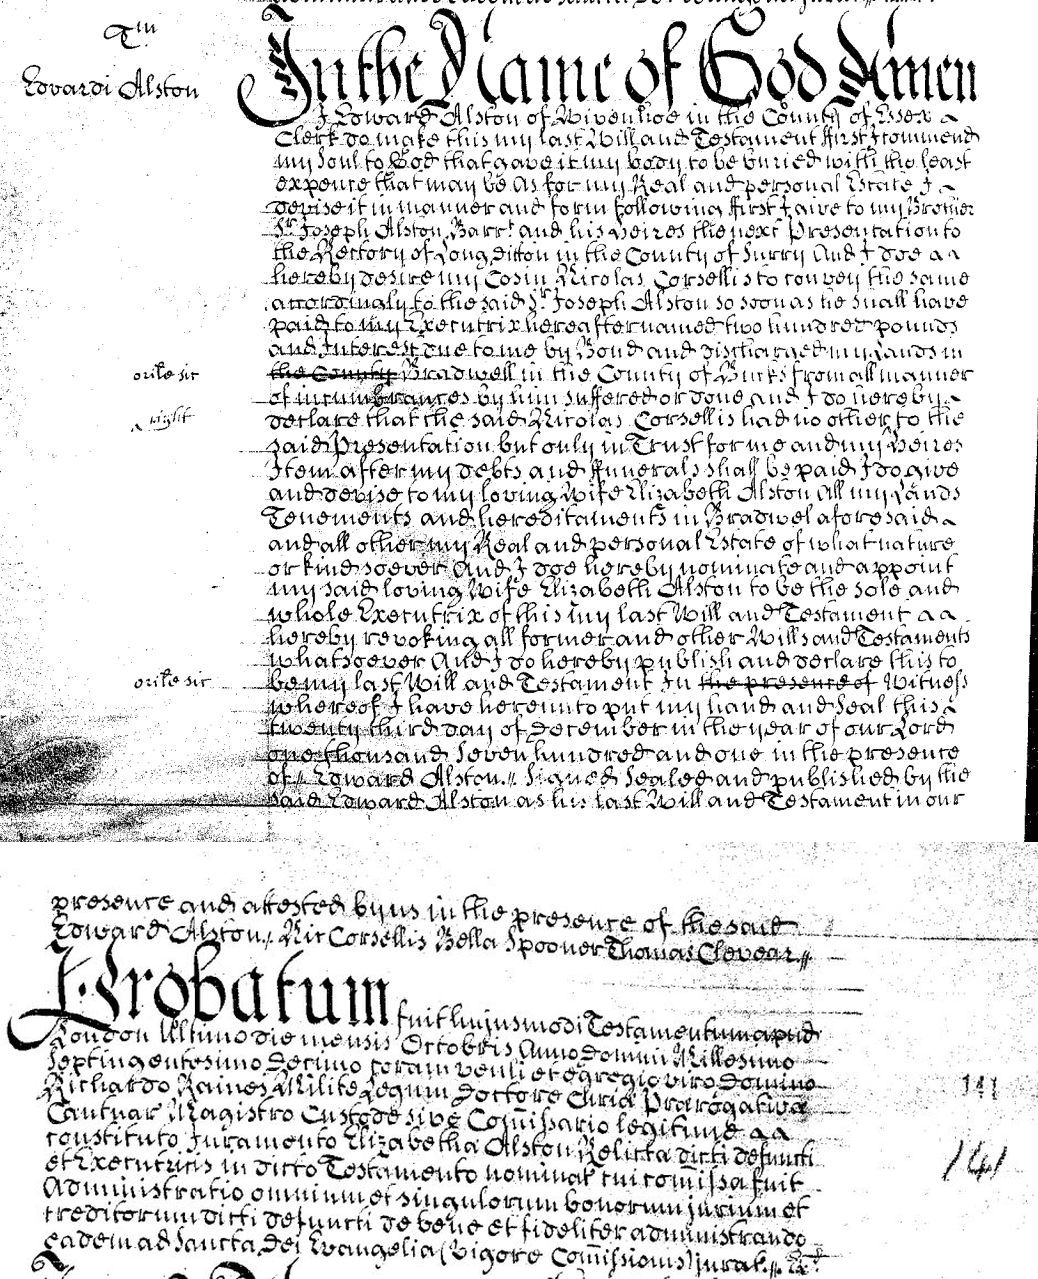 Tm
Edwardi Alston
In the Name of God Amen
I Edward Alston of Wivenhoe in the County of Essex
Clerk do make this my last Will and Testament ffirst I commend
my Soul to God that gave it my body to be buried with the least
expence that may be As for my Real and personal Estate I
devise it in manner and form following ffirst I give to my Brother
Sr. Joseph Alston Barrt and his Heires the next Presentation to
the Rectory of Long ditton in the County of Surry And I doe
hereby desire my Cosin Nicolas Corsellis to convey the same
accordingly to the said Sr Joseph Alston so soon as he shall have
paid to my Executrix hereafter named two hundred pounds
and Interest due to me by Bond and discharged my Lands in
orike sic
the County Bradwell in the County of Bucks from all manner
of incumbrances by him suffered or done and I do hereby
^ right
declare that the said Nicolas Corsellis had no other to the
said Presentation but only in Trust for me and my Heires
Item after my debts and ffuneral shall be paid I do give
and devise to my loving Wife Elizabeth Alston All my Lands
Tenements and hereditaments in Bradwel aforesaid
and all other my Real and personal Estate of what nature
or kind soever And I doe hereby nominate and appoint
my said loving Wife Elizabeth Alston to be the sole and
whole Executrix of this my last Will and Testament
hereby revoking all former and other Wills and Testaments
whatsoever And I do hereby publish and declare this to
orike sic
be my last Will and Testament In the presence of Witness
whereof I have hereunto put my hand and Seal this
twenty third day of December in the year of our Lord
one thousand Seven hundred and one in the presence
of // Edward Alston // Signed Sealed and published by the
said Edward Alston as his last Will and Testament in our
presence and attested by us in the presence of the said
Edward Alston // Nic Corsellis Bella Spooner Thomas Clevear //
Probatum fuit hujusmodi Testamentum apud
London Ultimo die mensis Octobris Anno Domini Millesimo
Septingentesimo Decimo coram venli et egregio viro Domino
Richardo Raines Milite Legum Doctore Curiæ Prærogativæ
141
Cantuar Magistro Custode sive Comissario legitime
constituto Juramento Elizabethæ Alston Relictæ dicti defuncti
et Executricis in dicto Testamento nominat cui comissa fuit
141
Administratio omnium et singulorum bonorum jurium et
creditorum dicti defuncti de bene et fideliter administrando
eadem ad Sancta Dei Evangelia (Vigore Comissionis) jurat. //